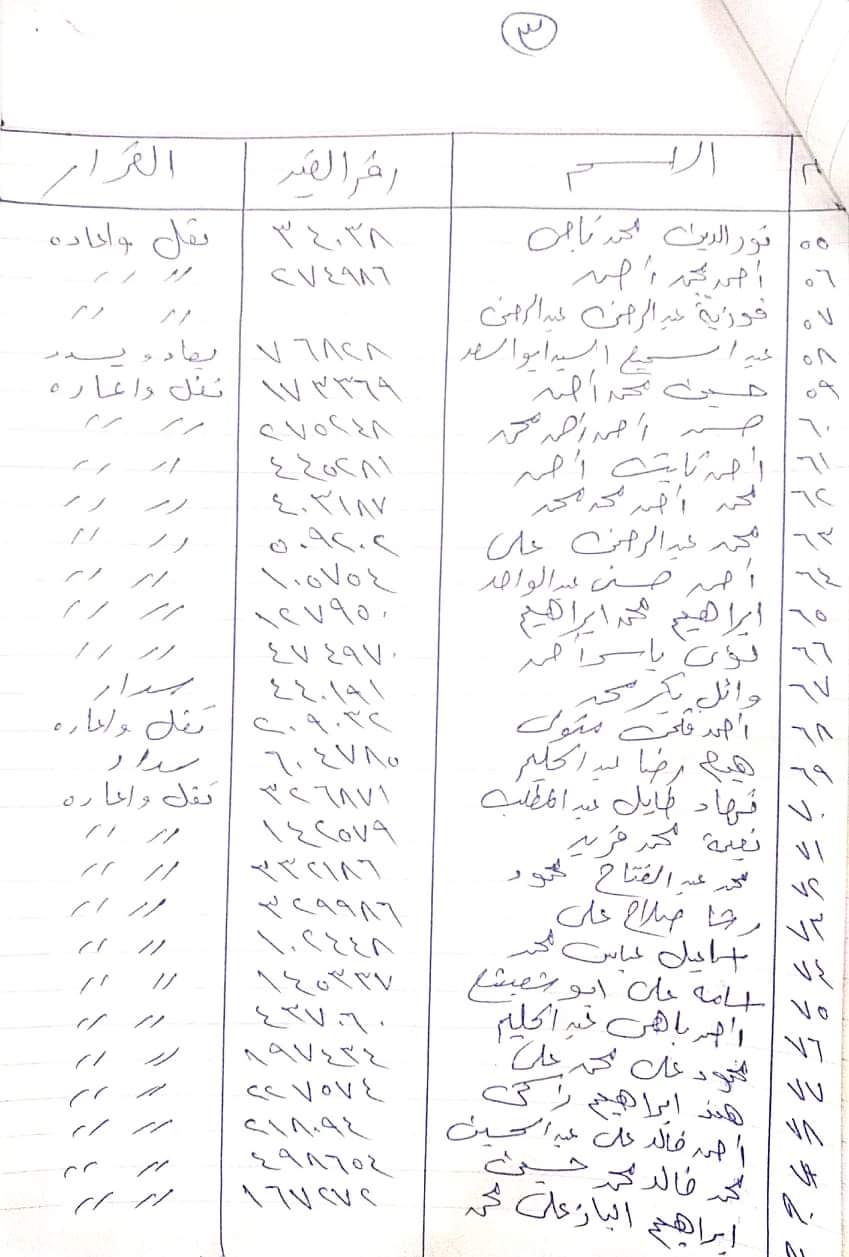 ٣
م الاسم رقم القيد القرار
٥٥ نور الدين محمد ناجى ٣٤٠٣٨ نقل واعاده
٥٦ أحمد محمد أحمد ٢٧٤٩٨٦ // //
٥٧ فوزية عبدالرحمن عبدالرحمن // //
٥٨ عبد السميع السيد ابوالسعد ٧٦٨٢٨ يعاد ويسدد
٥٩ حسين محمد أحمد ١٧٣٣٦٩ نقل واعاره
٦٠ حسن أحمد أحمد محمد ٢٧٥٢٤٨ // //
٦١ أحمد ثابت أحمد ٤٤٥٢٨١ // //
٦٢ محمد أحمد محمد محمد ٤٠٣١٨٧ // //
٦٣ محمد عبدالرحمن على ٥٠٩٢٠٢ // //
٦٤ أحمد حسنى عبدالواحد ١٠٥٧٥٤ // //
٦٥ ابراهيم محمد ابراهيم ١٢٧٩٥٠ // //
٦٦ لؤى ياسر أحمد ٤٧٤٩٧٠ // //
٦٧ وائل بكر محمد ٤٤٠١٩١ سداد
٦٨ أحمد فتحى متولى ٢٠٩٠٣٢ نقل واعاره
٦٩ هيثم رضا عبد الحليم ٦٠٤٧٨٥ سداد
٧٠ نهاد طايل عبد المطلب ٣٢٦٨٧١ نقل واعاره
٧١ نعيمة محمد فريد ١٤٢٥٧٩ // //
٧٢ محمد عبد الفتاح محمود ٣٣٢١٨٦ // //
٧٣ رشا صلاح على ٣٢٩٩٨٦ // //
٧٤ اسماعيل عباس محمد ١٠٢٤٤٨ // //
٧٥ اسامه على ابو شعيشع ١٤٥٣٣٧ // //
٧٦ أحمد باهى عبد الحليم ٤٣٧٠٦٠ // //
٧٧ محمود على محمد على ١٩٧٤٣٤ // //
٧٨ هند ابراهيم زكى ٢٢٧٥٧٤ // //
٧٩ أحمد خالد على عبد الحسين ٢١٨٠٩٤ // //
٨٠ محمد خالد محمد حسين ٤٩٨٦٥٤ // //
ابراهيم الباز على محمد ١٦٧٢٧٢ // //